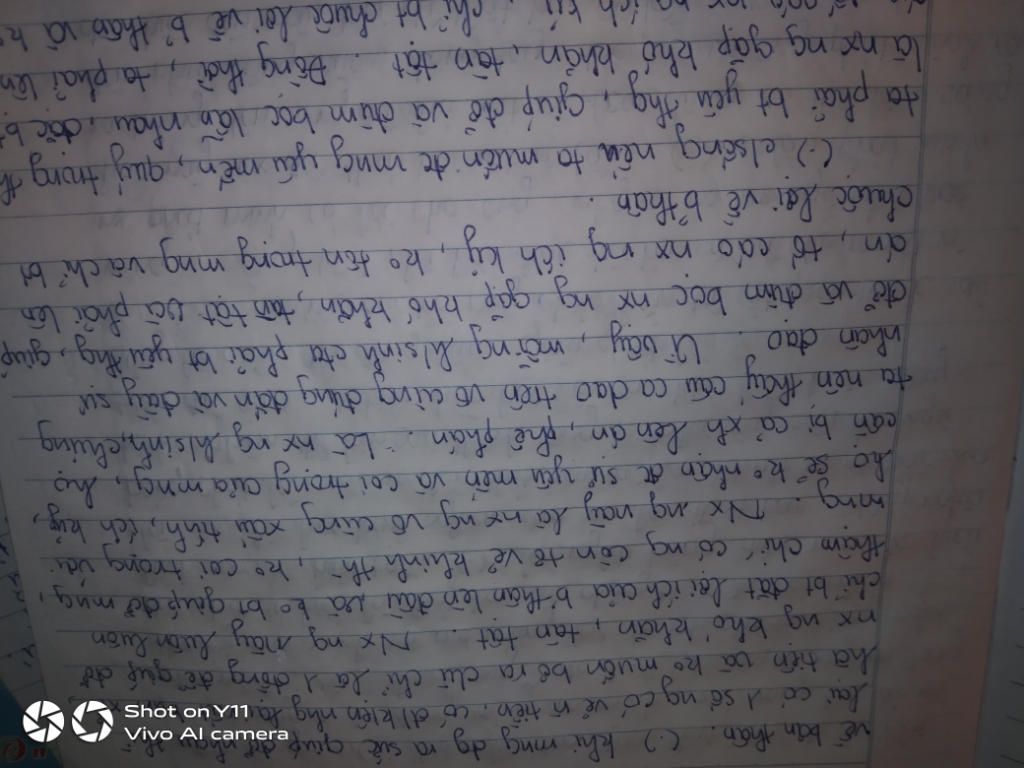 về bản thân. (.) khi mng dg ra sức giúp đỡ nhau thì
lại có 1 số ng có về n tiền, có đ kiện nhg lại
hà tiện và ko muốn bỏ ra dù chỉ là 1 đồng để giúp đỡ
nx ng khó khăn, tàn tật. Nx ng này luôn luôn
chỉ bt đặt lợi ích của b thân lên đầu và ko bt giúp đỡ mng,
thậm chí có ng còn tỏ vẻ khinh thì, ko coi trọng vs
mng. Nx ng này là nx ng vô cùng xấu tính, ích kỷ,
họ sẽ ko nhận đc sự yêu mến và coi trọng của mng, họ
cần bị cả xh lên án, phê phán. Là nx ng h/sinh, chúng
ta nên thấy câu ca dao trên vô cùng đúng đắn và đầy sự
nhân đạo. Vì vậy, mỗi ng h/sinh cta phải bt yêu thg, giúp
đỡ và đùm bọc nx ng gặp khó khăn, tàn tật và phải lên
án, tố cáo nx ng ích kỷ, ko tôn trọng mng và chỉ bt
chuộc lợi về b thân.
(.) c/sống nếu ta muốn đc mng yêu mến, quý trọng th
ta phải bt yêu thg, giúp đỡ và đùm bọc lẫn nhau, đặc b
là nx ng gặp khó khăn, tàn tật. Đồng thời, ta phải lên
nx ng ích kỷ, chỉ bt chuộc lợi về b thân và k
Shot on Y11
Vivo AI camera